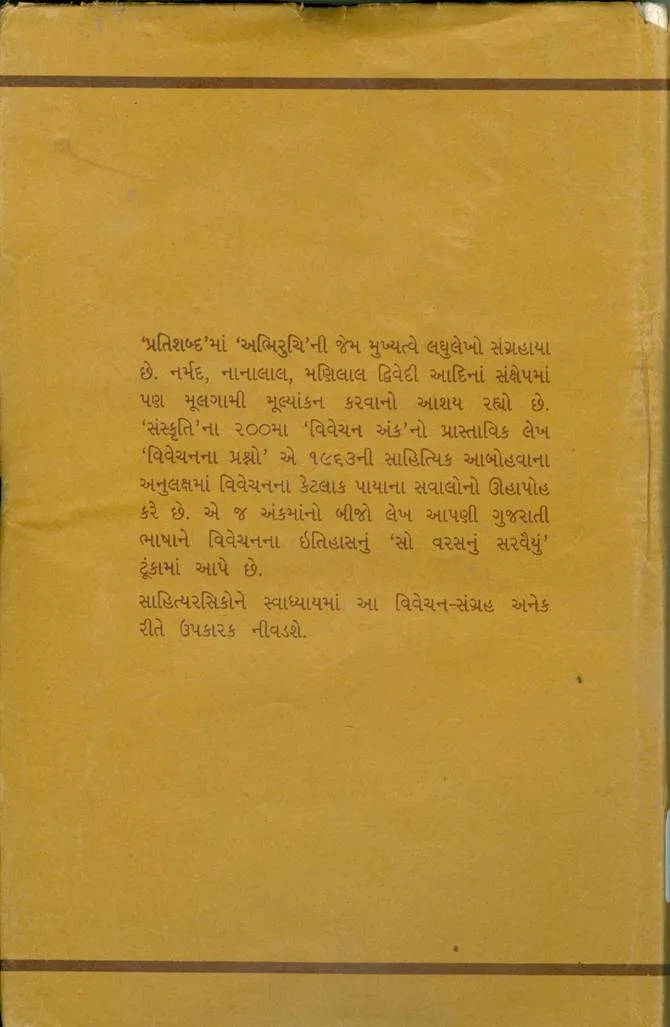 ‘પ્રતિશબ્દ’માં ‘અભિરુચિ’ની જેમ મુખ્યત્વે લઘુલેખો સંગ્રહાયા
છે. નર્મદ, નાનાલાલ, મણિલાલ દ્વિવેદી આદિનાં સંક્ષેપમાં
પણ મૂલગામી મૂલ્યાંકન કરવાનો આશય રહ્યો છે.
‘સંસ્કૃતિ’ના ૨૦૦મા ‘વિવેચન અંક’નો પ્રાસ્તાવિક લેખ
‘વિવેચનના પ્રશ્નો’ એ ૧૯૬૩ની સાહિત્યિક આબોહવાના
અનુલક્ષમાં વિવેચનના કેટલાક પાયાના સવાલોનો ઊહાપોહ
કરે છે. એ જ અંકમાંનો બીજો લેખ આપણી ગુજરાતી
ભાષાને વિવેચનના ઇતિહાસનું ‘સો વરસનું સરવૈયું’
ટૂંકામાં આપે છે.
સાહિત્યરસિકોને સ્વાધ્યાયમાં આ વિવેચન-સંગ્રહ અનેક
રીતે ઉપકારક નીવડશે.